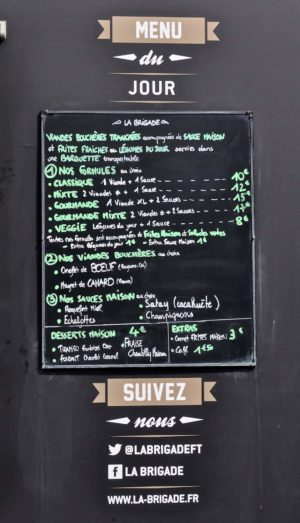 MENU
du
JOUR
LA BRIGADE
VIANDES BOUCHÈRES TRANCHÉES accompagnées de SAUCE MAISON
et FRITES FRAÎCHES ou LÉGUMES DU JOUR servies dans
une BARQUETTE transportable
① NOS FORMULES au choix
• CLASSIQUE 1 Viande + 1 Sauce 10€
• MIXTE 2 Viandes + 1 Sauce 12€
• GOURMANDE 1 Viande XL + 2 Sauces 15€
• GOURMANDE MIXTE 2 Viandes + 2 Sauces 17€
• VEGGIE Légumes du jour + 1 Sauce 8€
Toutes nos formules sont accompagnées de Frites Maison & Salade
- Extra Légumes du jour 1€ - Extra Sauce Maison 1€
② NOS VIANDES BOUCHÈRES au choix
• Onglet de BŒUF
• Magret de CANARD
③ NOS SAUCES MAISON au choix
• Roquefort Miel • Satay (cacahuète)
• Echalottes • Champignons
DESSERTS MAISON 4€
• TIRAMISU
• FRAISE
Chantilly Maison
EXTRAS
• Cornet FRITES MAISON 3€
• Café 1€50
SUIVEZ
nous
@LABRIGADEFT
LA BRIGADE
WWW.LA-BRIGADE.FR